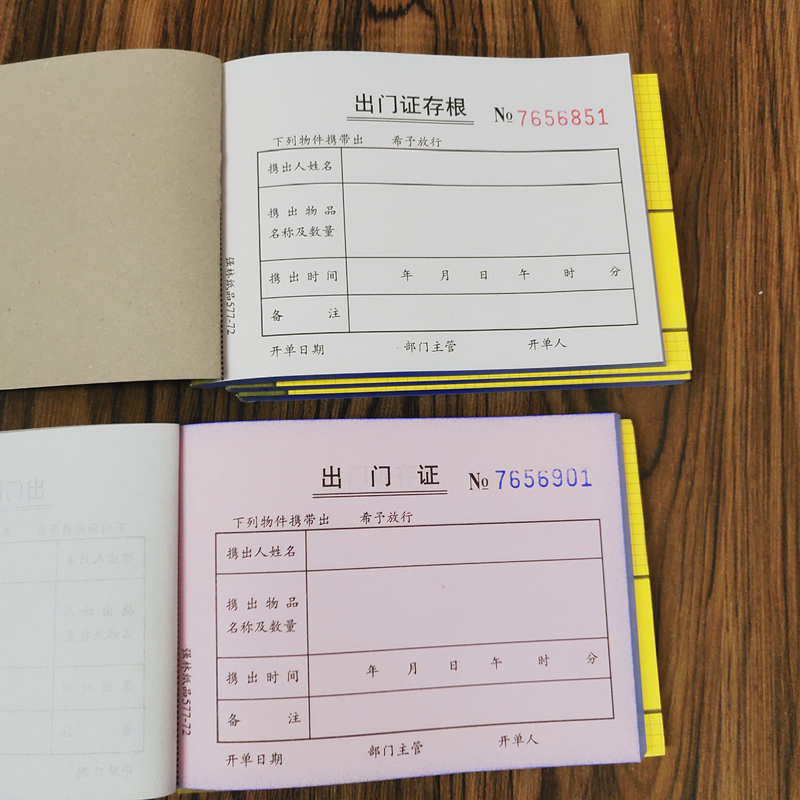 出门证存根 № 7656851
下列物件携带出 希予放行
携出人姓名
携出物品
名称及数量
携出时间 年 月 日 午 时 分
备注
开单日期 部门主管 开单人
强林纸品577-72
出门证 № 7656901
下列物件携带出 希予放行
携出人姓名
携出物品
名称及数量
携出时间 年 月 日 午 时 分
备注
开单日期 部门主管 开单人
强林纸品577-72